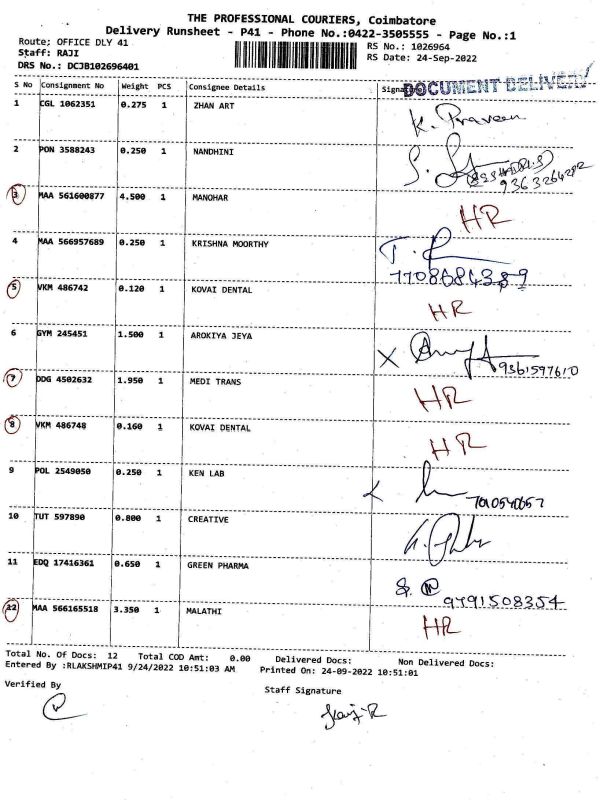 THE PROFESSIONAL COURIERS, Coimbatore
Delivery Runsheet - P41 - Phone No.:0422-3505555 - Page No.:1
Route; OFFICE DLY 41
Staff: RAJI
DRS No.: DCJB102696401
RS No.: 1026964
RS Date: 24-Sep-2022
S No Consignment No Weight PCS Consignee Details Signature
DOCUMENT DELIVERY
1 CGL 1062351 0.275 1 ZHAN ART K. Praveen
2 PON 3588243 0.250 1 NANDHINI
9363264282
3 MAA 561600877 4.500 1 MANOHAR HR
4 MAA 566957689 0.250 1 KRISHNA MOORTHY
7708684389
5 VKM 486742 0.120 1 KOVAI DENTAL HR
6 GYM 245451 1.500 1 AROKIYA JEYA X
9361597610
7 DDG 4502632 1.950 1 MEDI TRANS HR
8 VKM 486748 0.160 1 KOVAI DENTAL HR
9 POL 2549050 0.250 1 KEN LAB
10 TUT 597890 0.800 1 CREATIVE
11 EDQ 17416361 0.650 1 GREEN PHARMA
9791508354
12 MAA 566165518 3.350 1 MALATHI HR
Total No. Of Docs: 12 Total COD Amt: 0.00 Delivered Docs: Non Delivered Docs:
Entered By :RLAKSHMIP41 9/24/2022 10:51:03 AM Printed On: 24-09-2022 10:51:01
Verified By
Staff Signature